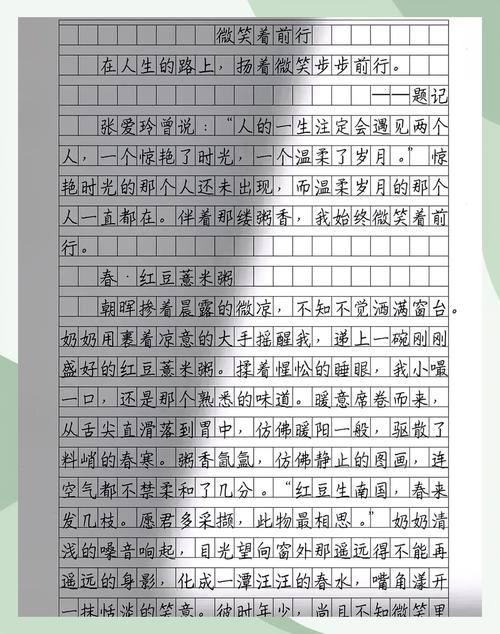 微笑着前行
在人生的路上，扬着微笑步步前行。
——题记
张爱玲曾说：“人的一生注定会遇见两个
人，一个惊艳了时光，一个温柔了岁月。”惊
艳时光的那个人还未出现，而温柔岁月的那个
人一直都在。伴着那缕粥香，我始终微笑着前
行。
春·红豆薏米粥
朝晖掺着晨露的微凉，不知不觉洒满窗台。
奶奶用裹着凉意的大手摇醒我，递上一碗刚刚
盛好的红豆薏米粥。揉着惺忪的睡眼，我小嘬
一口，还是那个熟悉的味道。暖意席卷而来，
从舌尖直滑落到胃中，仿佛暖阳一般，驱散了
料峭的春寒。粥香氤氲，仿佛静止的图画，连
空气都不禁柔和了几分。“红豆生南国，春来
发几枝。愿君多采撷，此物最相思。”奶奶清
浅的嗓音响起，目光望向窗外那遥远得不能再
遥远的身影，化成一潭汪汪的春水，嘴角漾开
一抹恬淡的笑意。彼时年少，尚且不知微笑里